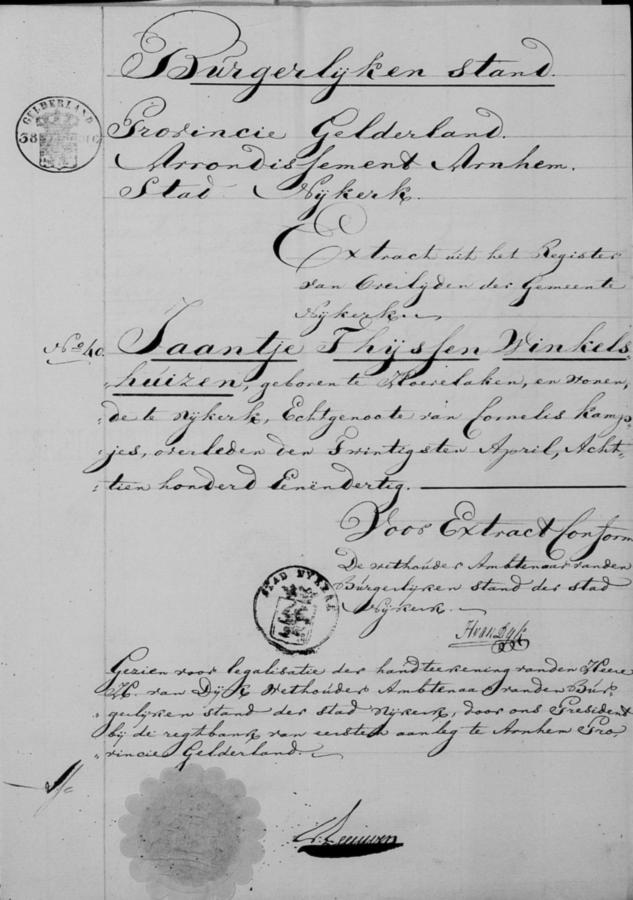 Burgerlijken stand.
GELDERLAND
38
Provincie Gelderland.
Arrondissement Arnhem.
Stad Nijkerk.
Extract uit het Register
van Overlijden der Gemeente
Nijkerk.
No. 40. Jaantje Thijssen Winkels
huizen, geboren te Hoevelaken, en wonen,
de te Nijkerk, Echtgenoote van Cornelis Kamp,
jes, overleden den Twintigsten April, Acht,
tien honderd Eenëndertig.
Voor Extract Conform
De wethouder Ambtenaar van den
Burgerlijken stand der stad
Nijkerk.
STAD NYKERK
H van Dijk
Gezien voor legalisatie der handteekening van den Heere
H. van Dijk Wethouder Ambtenaar van den Bur,
gerlijken stand der stad Nijkerk, door ons President
bij de regtbank van eersten aanleg te Arnhem Pro,
vincie Gelderland.
Leeuwen